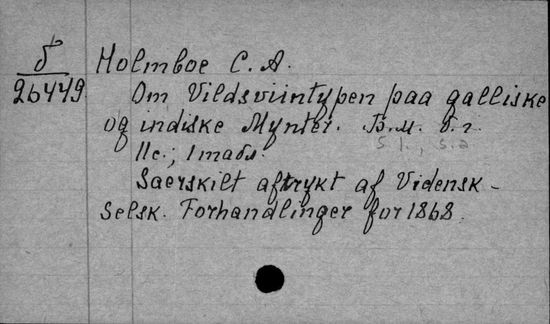 б
26449
Holmboe C. A.
Om Vildsviintypen paa galliske
og indiske Mynter. Б.м. б.г.
s l., s.a
11c.; 1 табл.
Saerskilt aftrykt af Vidensk-
Selsk. Forhandlinger for 1868.